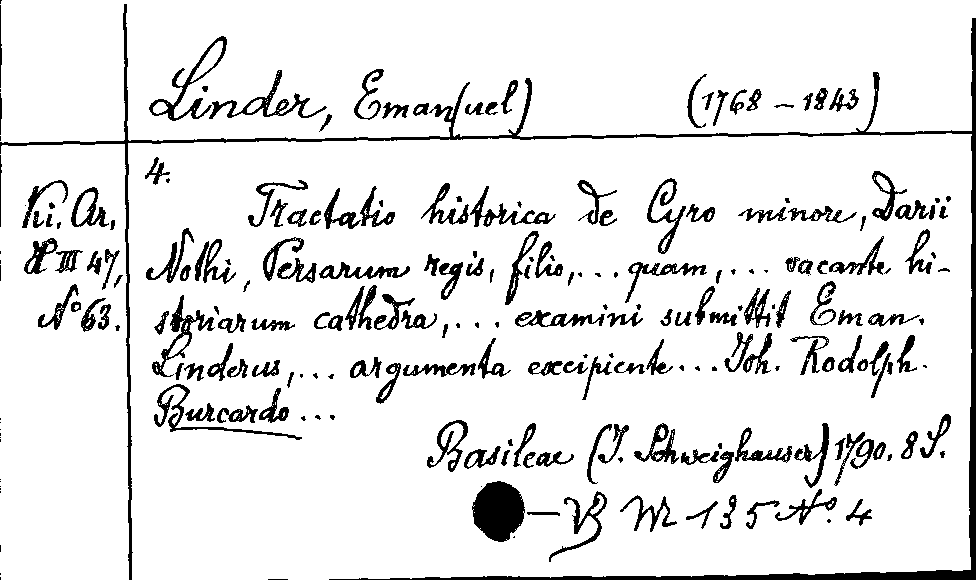 Linder, Eman(uel) (1768 – 1843)
4.
Ki. Ar.
H III 47,
No 63.
Tractatio historica de Cyro minore, Darii
Nothi, Persarum regis, filio, ... quam, ... vacante hi-
storiarum cathedra, ... examini submittit Eman.
Linderus, ... argumenta excipiente ... Joh. Rodolph.
Burcardo ...
Basileae (J. Schweighauser) 1790. 8 S.
– VB M 135 No. 4